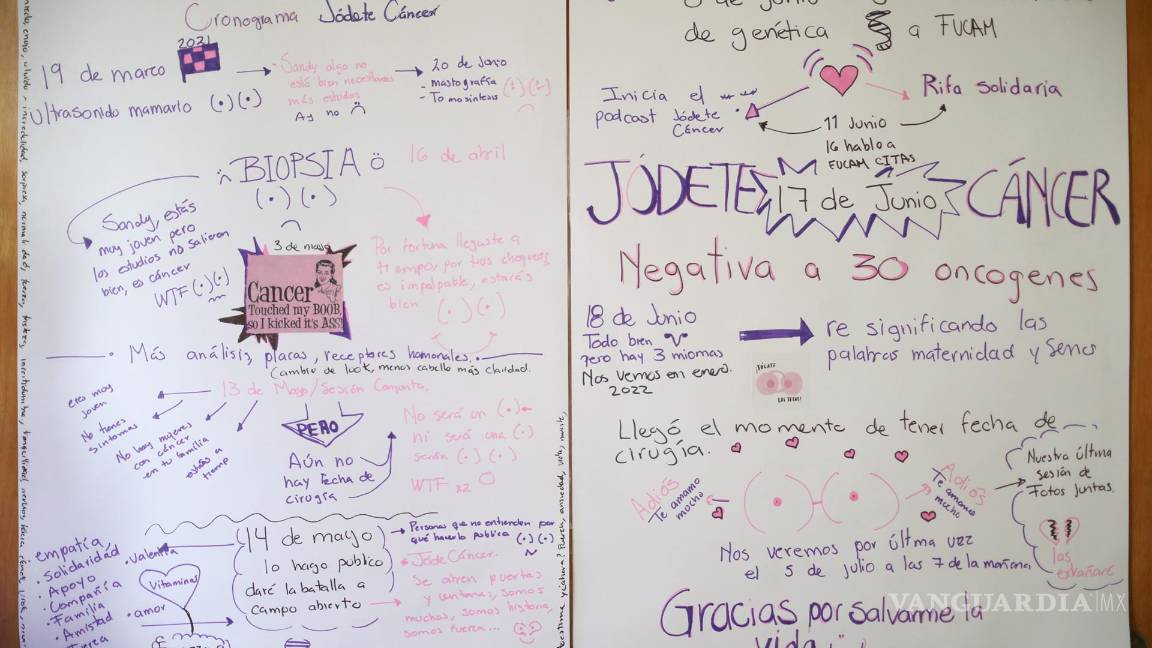 Cronograma Jódete Cáncer
2021
19 de marzo
Ultrasonido mamario (·)(·)
- Sandy algo no
está bien necesitamos
más estudios
Ay no
20 de Junio
- mastografía
- Tomosintesis
BIOPSIA
16 de abril
(·)(·)
Sandy, estás
muy joven pero
los estudios no salieron
bien, es cáncer
WTF (·)(·)
3 de mayo
Cancer
Touched my BOOB,
so I kicked it's ASS!
Por fortuna llegaste a
tiempo por tus chequeos
es impalpable, estarás
bien (·)(·)
Más análisis, placas, receptores hormonales.
(Cambio de look, menos cabello más claridad.
13 de Mayo/Sesión Conjunta.
eres muy
joven
No tienes
síntomas
No hay mujeres
con cáncer
en tu familia
estás a
tiempo
PERO
Aún no
hay fecha de
cirugía
No será un (·)
ni será una (·)
serán (·)(·)
WTF x2
14 de mayo
lo hago publico
daré la batalla a
campo abierto
Personas que no entienden por
qué hacerlo publico (·)(·)
Jódete Cáncer.
Se abren puertas
y ventanas, somos
muchas, somos historia,
somos fuerza...
empatía,
· Solidaridad
· Apoyo
· Compañía
· Familia
· Amistad
· Valentía
Vitaminas
· amor
de genética a FUCAM
Inicia el
podcast Jódete
Cáncer
Rifa solidaria
11 Junio
16 hablo a
FUCAM CITAS
JÓDETE 17 de Junio CÁNCER
Negativa a 30 oncogenes
18 de Junio
Todo bien
pero hay 3 miomas
Nos vemos en enero.
2022
re significando las
palabras maternidad y senos
¡TÓCATE
LAS TETAS!
Llegó el momento de tener fecha de
cirugía.
Adiós
Te amamos
mucho
Adiós
Te amamos
mucho
Nuestra última
sesión de
Fotos juntas.
las
extrañaré
Nos veremos por última vez
el 5 de julio a las 7 de la mañana
Gracias por salvarme la
vida
VANGUARDIA|MX